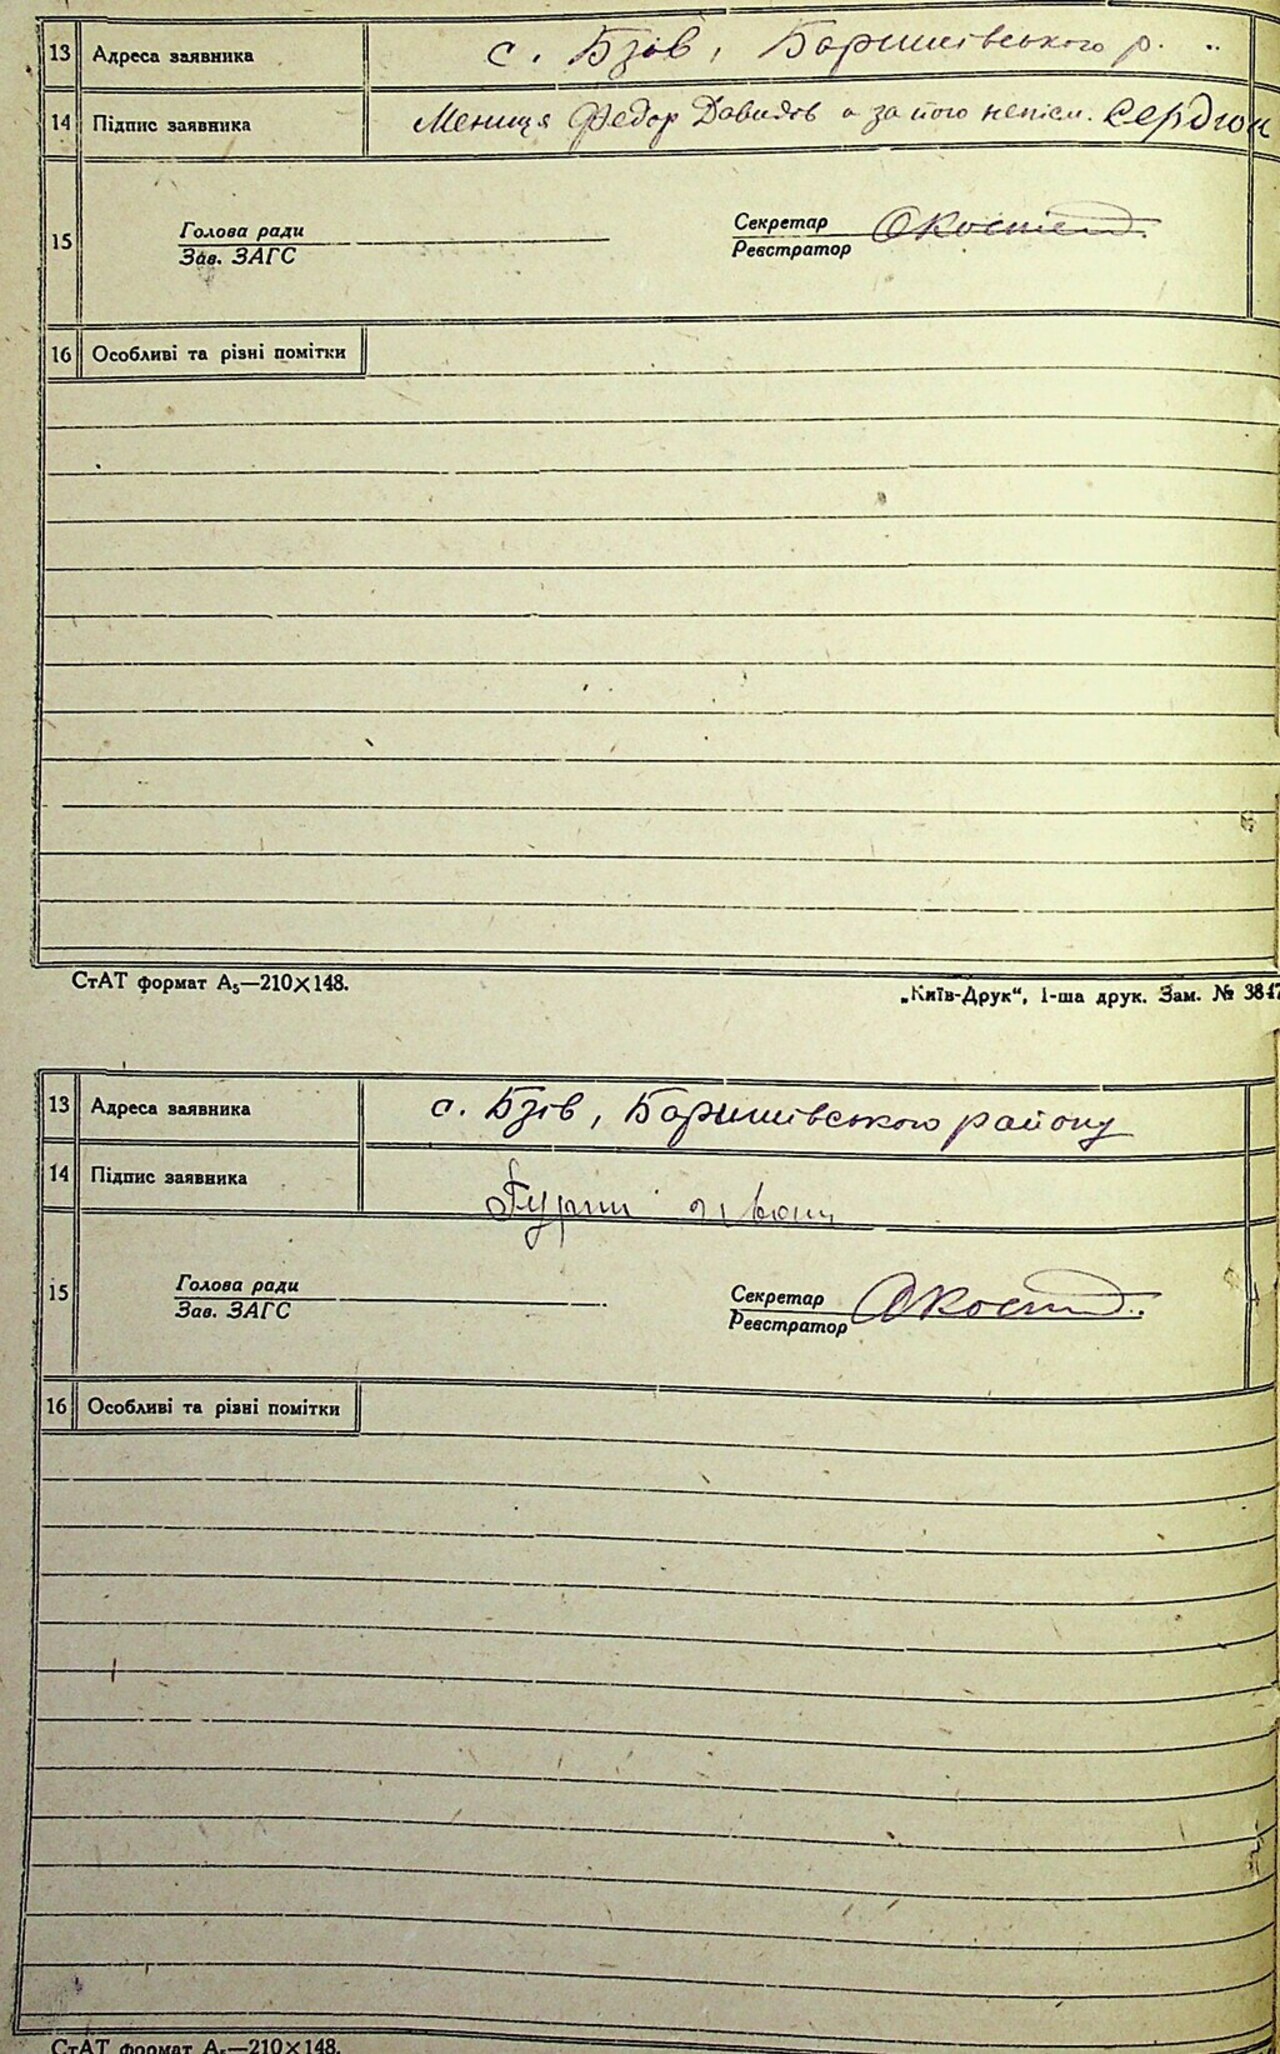 13 Адреса заявника с. Бзів, Баришівського р.
14 Підпис заявника Мениця Федор Давидів а за його непісм. Сердюк
15 Голова ради Зав. ЗАГС Секретар Реєстратор
16 Особливі та різні помітки
СтАТ формат А₅—210×148.
„Київ-Друк“, 1-ша друк. Зам. № 3847
13 Адреса заявника с. Бзів, Баришівського району
14 Підпис заявника
15 Голова ради Зав. ЗАГС Секретар Реєстратор
16 Особливі та різні помітки
СтАТ формат А₅—210×148.